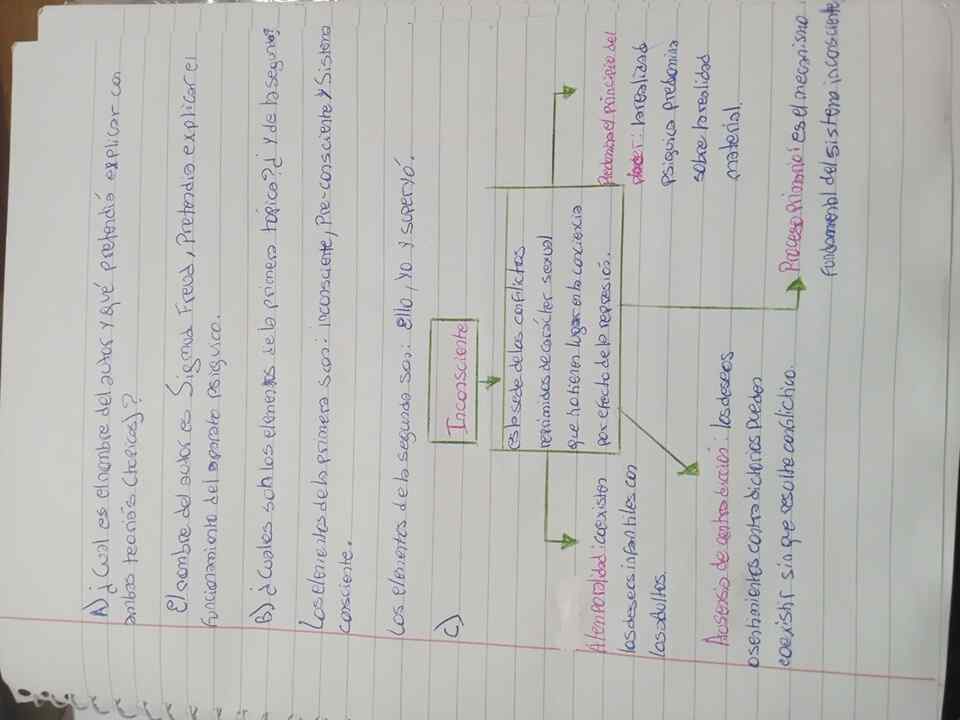 A) ¿Cual es el nombre del autor y qué pretendió explicar con
ambas teorías (topicas)?
El nombre del autor es Sigmod Freud, Pretendia explicar el
funcionamiento del aparato psíquico.
B) ¿Cuales son los elementos de la primera tópica?¿ y de la segunda?
Los elementos de la primera son: inconsciente, Pre-consciente y Sistema
consciente.
Los elementos de la segunda son: ello, yo y superyó.
C)
Inconsciente
es la sede de los conflictos
reprimidos de carácter sexual
que no tienen lugar en la conciencia
por efecto de la represión.
Atemporalidad: coexisten
los deseos infantiles con
los adultos.
Predomina el principio del
placer: la realidad
psíquica predomina
sobre la realidad
material.
Ausencia de contradicción: los deseos
o sentimientos contradictorios pueden
coexistir sin que resulte conflictivo.
Proceso Primario: es el mecanismo
fundamental del sistema inconsciente